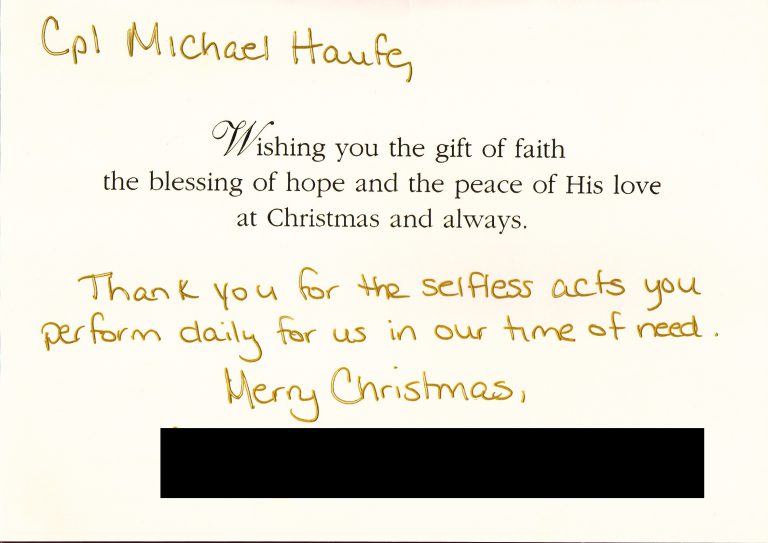 Cpl Michael Haufe,
Wishing you the gift of faith
the blessing of hope and the peace of His love
at Christmas and always.
Thank you for the selfless acts you
perform daily for us in our time of need.
Merry Christmas,